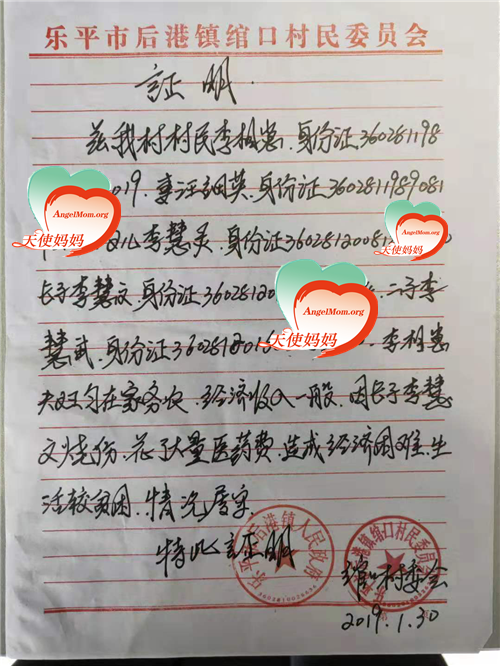 乐平市后港镇绾口村民委员会
证明.
兹我村村民李相崽.身份证360281198
019.妻汪细英.身份证3602811989081
女儿李慧灵.身份证36028120081
长子李慧文.身份证3602812
二子李
慧武.身份证360281201
李相崽
夫妇均在家务农.经济收入一般.因长子李慧
文烧伤.花了大量医药费.造成经济困难.生
活较贫困.情况属实.
特此证明
绾口村委会
2019.1.30
乐平市后港镇人民政府
后港镇绾口村民委员会
AngelMom.org
天使妈妈
AngelMom.org
天使妈妈
AngelMom.org
天使妈妈